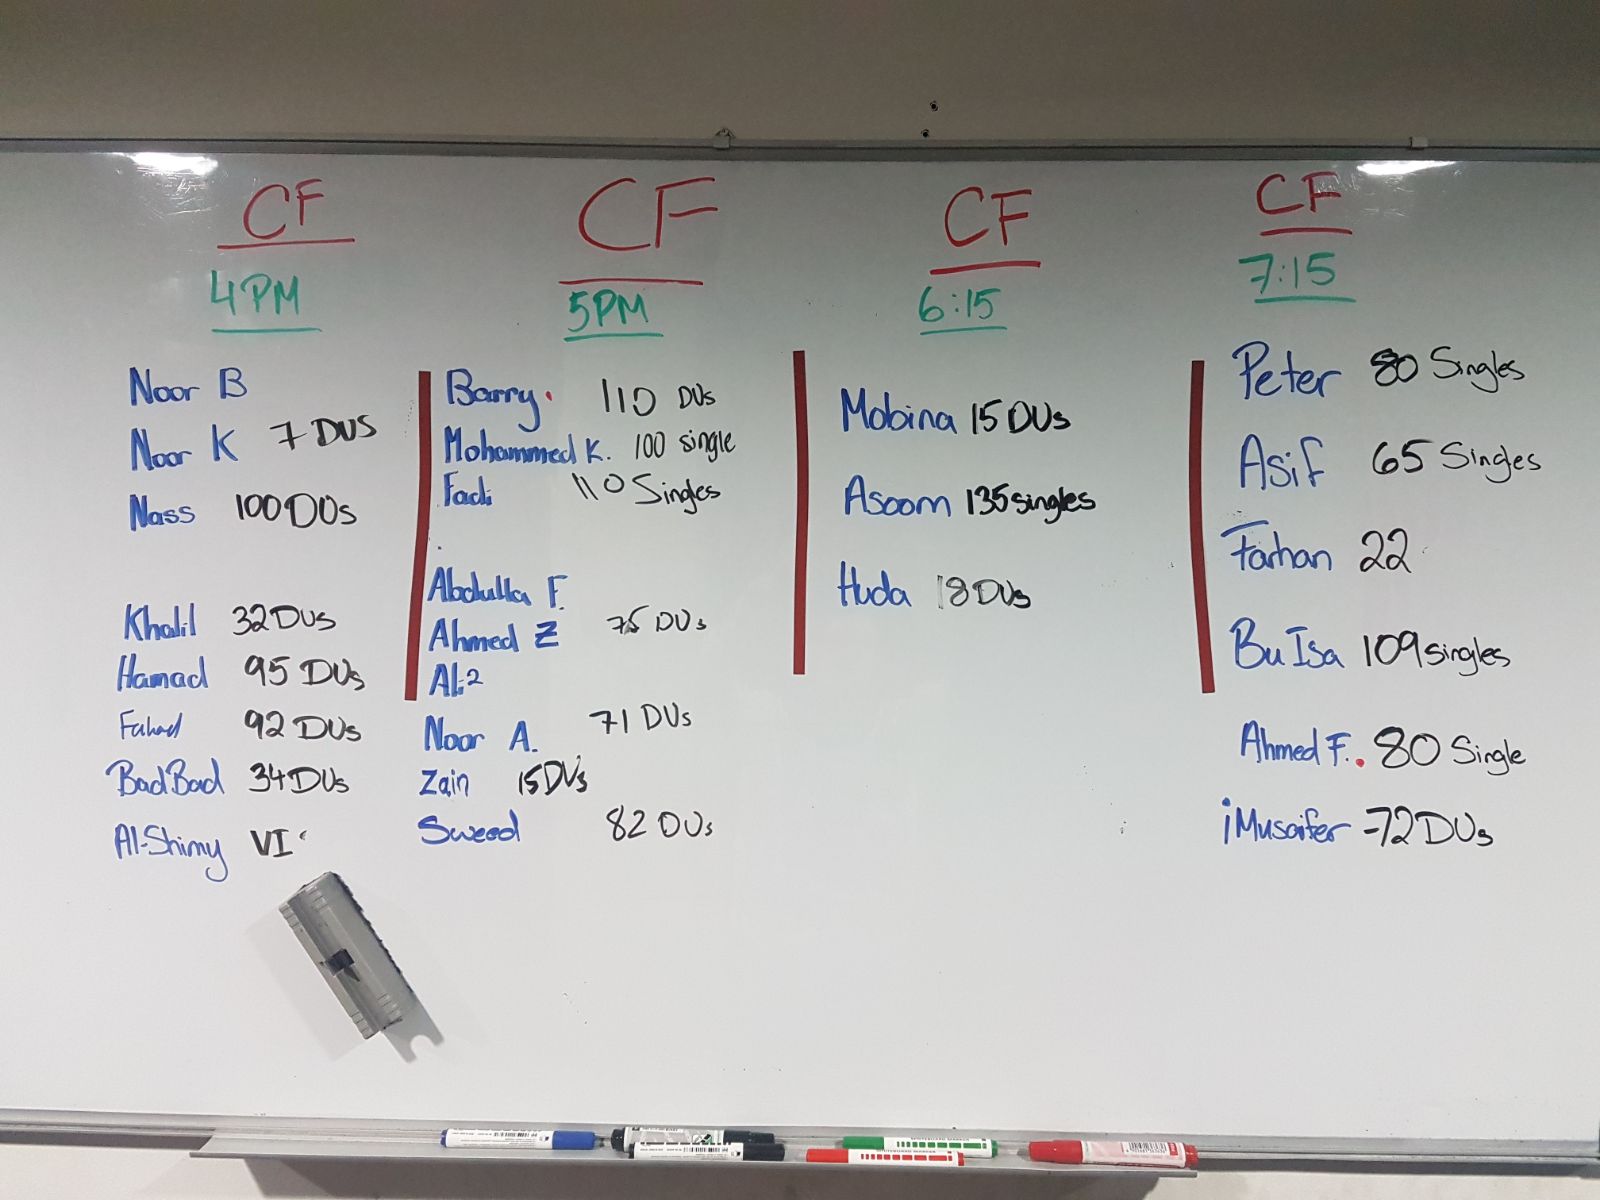 CF
4PM
Noor B
Noor K 7 DUS
Nass 100DUs
Khalil 32DUs
Hamad 95 DUs
Fahad 92 DUs
BadBad 34DUs
Al-Shimy VI
CF
5PM
Barry. 110 DUs
Mohammed K. 100 single
Fadi 110 Singles
Abdulla F.
Ahmed Z 75 DUs
Ali2
Noor A. 71 DUs
Zain 15DUs
Sweed 82 DUs
CF
6:15
Mobina 15DUs
Asoom 135singles
Huda 18DUs
CF
7:15
Peter 80 Singles
Asif 65 Singles
Farhan 22
Bu Isa 109singles
Ahmed F.. 80 Single
iMusaifer -72DUs